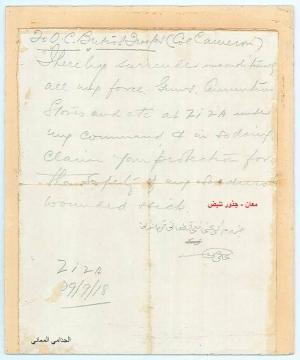 To O.C. British Troops (Col Cameron)
I hereby surrender unconditionally
all my force Guns, Ammunition
Stores and etc at ZiZA under
my command & in so doing
claim your protection for
the safety of my soldiers
wounded & sick.
معان - جذور تنبض
ZiZA
29/9/18
الجذامي المعاني